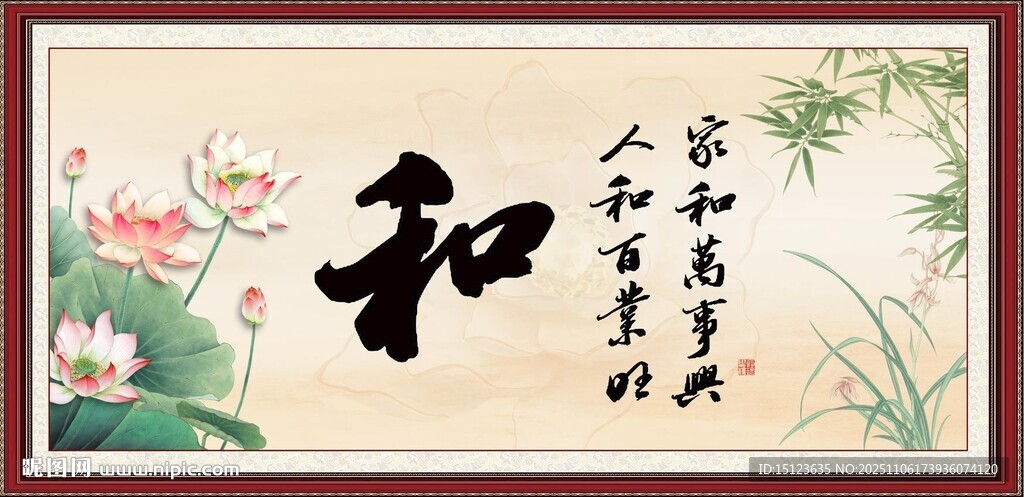 和
家和萬事興
人和百業旺
昵图网 www.nipic.com
ID:15123635 NO:20251106173936074120